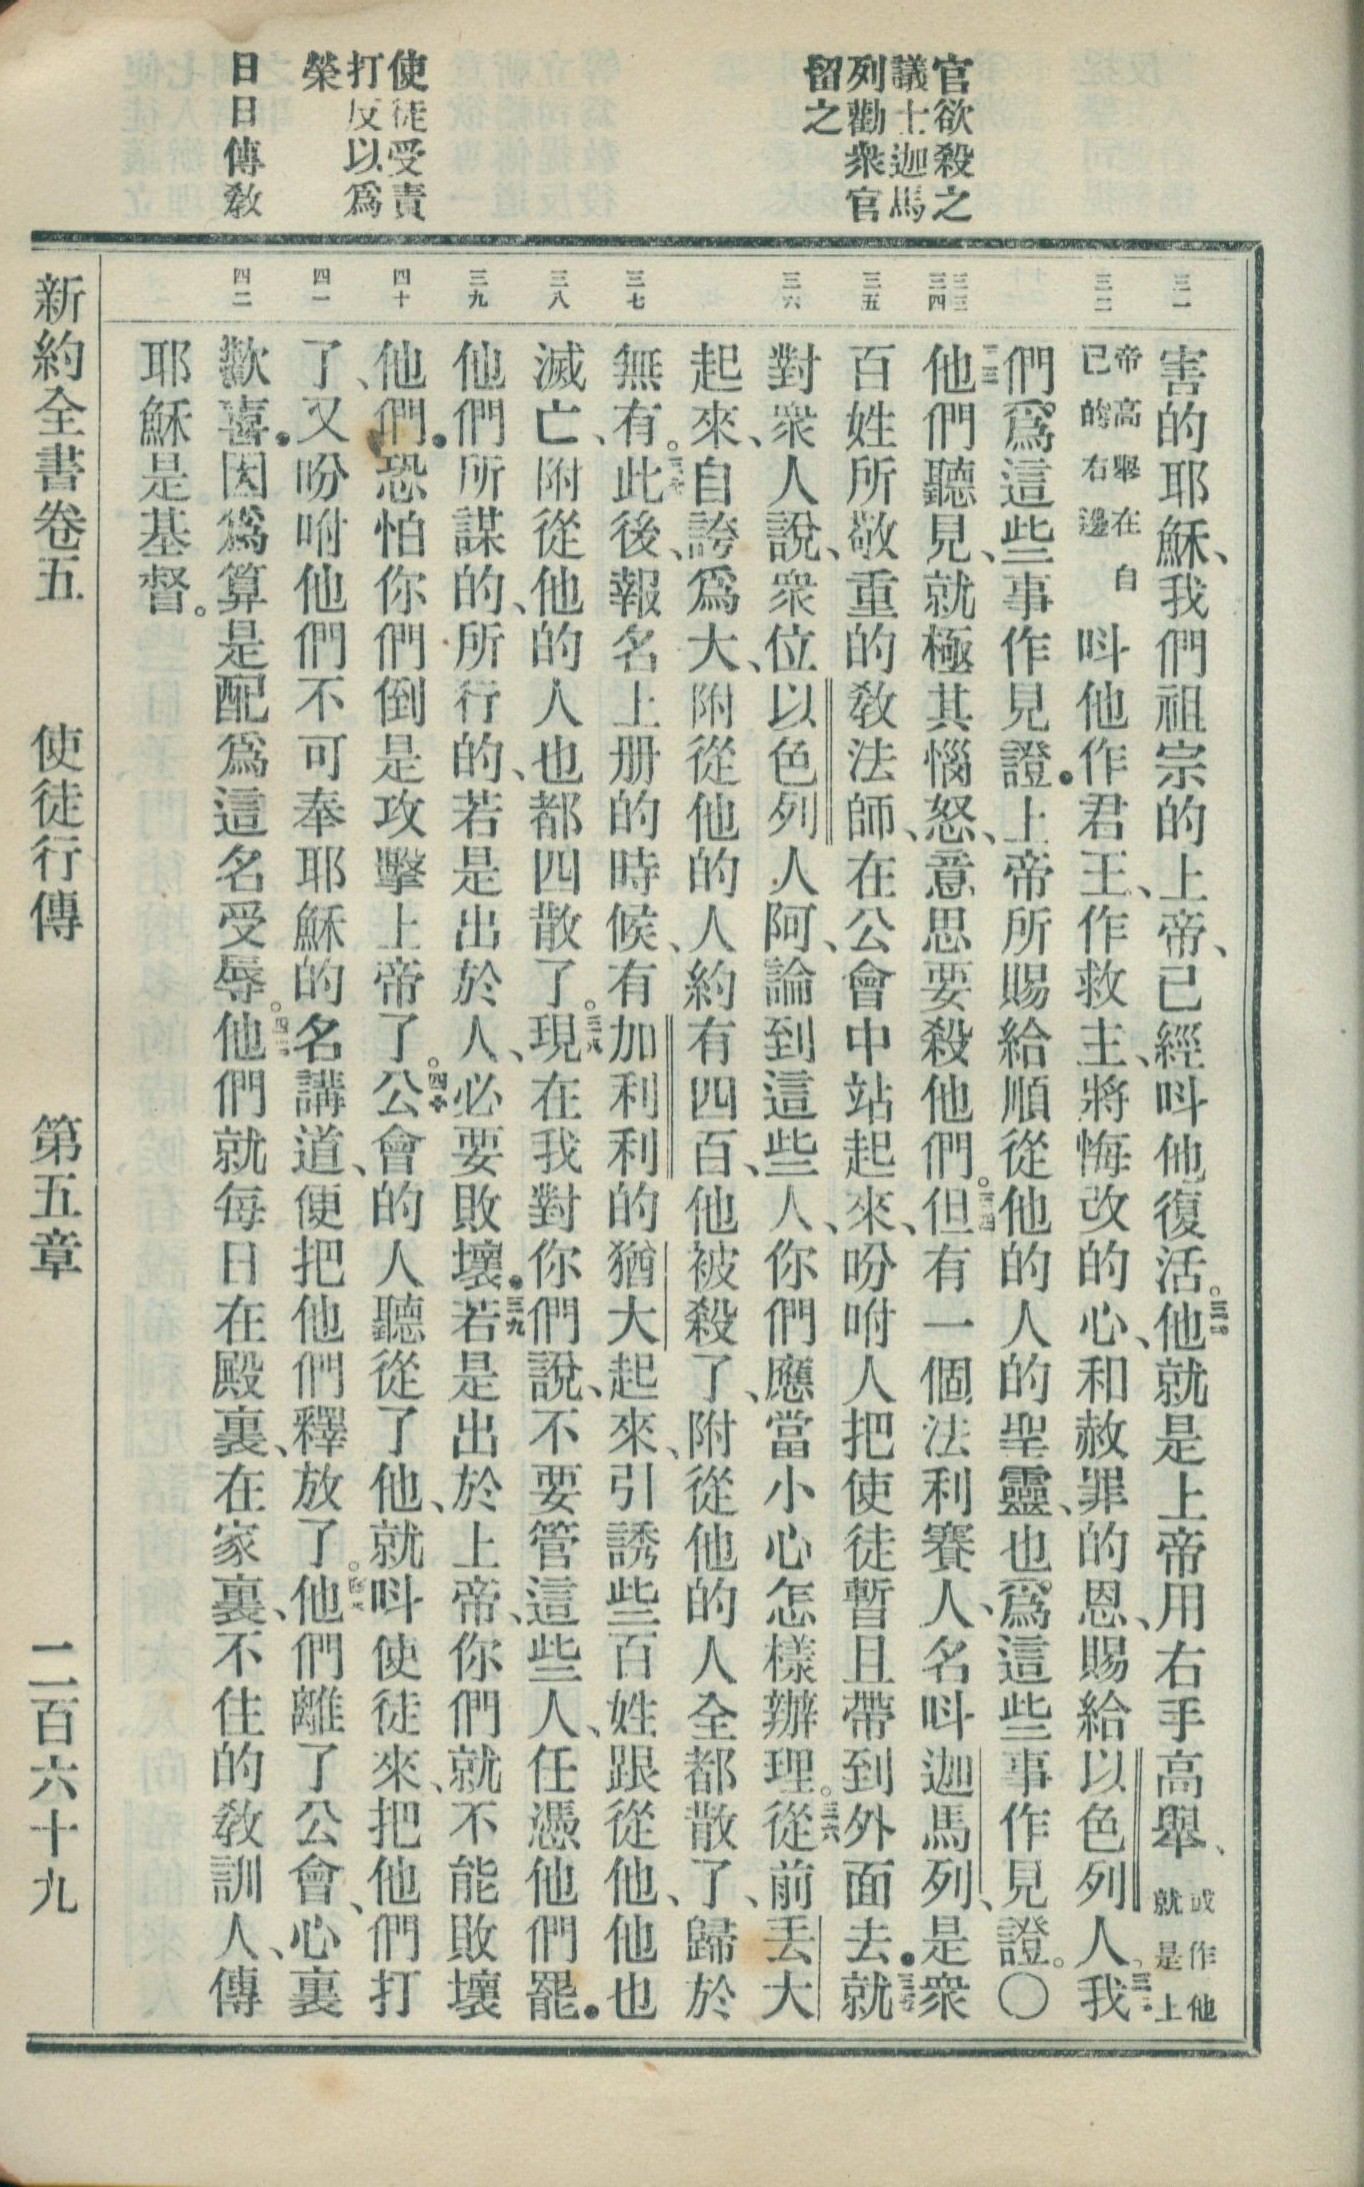 官欲殺之
議士迦馬
列勸衆官
留之
使徒受責
打反以爲
榮
日日傳教
三一
三二
三三
三四
三五
三六
三七
三八
三九
四十
四一
四二
害的耶穌、我們祖宗的上帝、已經呌他復活。他就是上帝用右手高舉、或作他就是上
帝高舉在自己的右邊呌他作君王、作救主、將悔改的心、和赦罪的恩、賜給以色列人。我
們爲這些事作見證.上帝所賜給順從他的人的聖靈、也爲這些事作見證。〇
他們聽見、就極其惱怒、意思要殺他們。但有一個法利賽人、名呌迦馬列、是衆
百姓所敬重的教法師、在公會中站起來、吩咐人把使徒暫且帶到外面去.就
對衆人說、衆位以色列人阿、論到這些人、你們應當小心怎樣辦理。從前丟大
起來、自誇爲大、附從他的人約有四百、他被殺了、附從他的人全都散了、歸於
無有。此後、報名上册的時候、有加利利的猶大起來、引誘些百姓跟從他、他也
滅亡、附從他的人也都四散了。現在我對你們說、不要管這些人、任憑他們罷.
他們所謀的、所行的、若是出於人、必要敗壞.若是出於上帝、你們就不能敗壞
他們.恐怕你們倒是攻擊上帝了。公會的人聽從了他、就呌使徒來、把他們打
了、又吩咐他們不可奉耶穌的名講道、便把他們釋放了。他們離了公會、心裏
歡喜.因爲算是配爲這名受辱。他們就每日在殿裏、在家裏、不住的教訓人、傳
耶穌是基督。
新約全書卷五 使徒行傳 第五章 二百六十九